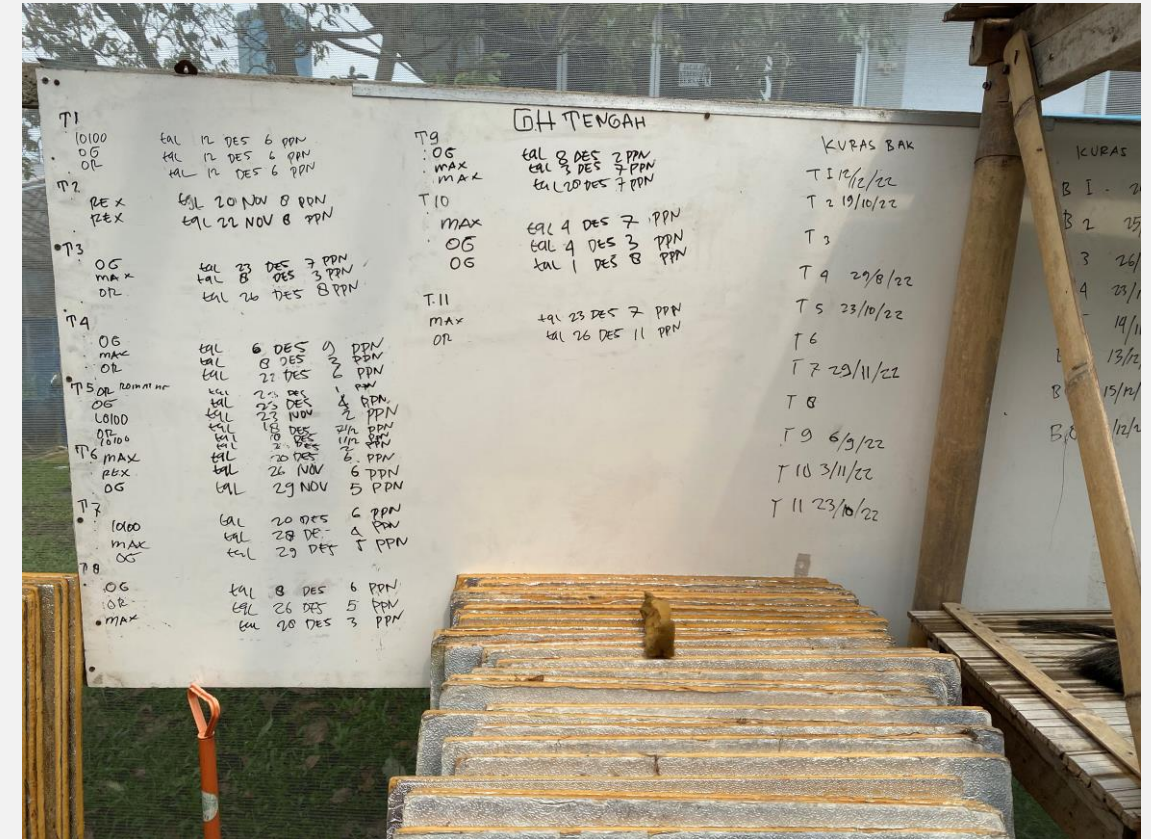 GH TENGAH
T1
10100 tgl 12 DES 6 PPN
OG tgl 12 DES 6 PPN
OR tgl 12 DES 6 PPN
T2
REX tgl 20 NOV 8 PPN
REX tgl 22 NOV 8 PPN
T3
OG tgl 23 DES 7 PPN
MAX tgl 8 DES 3 PPN
OR tgl 26 DES 8 PPN
T4
OG tgl 6 DES 9 PPN
MAX tgl 8 DES 2 PPN
OR tgl 22 DES 6 PPN
T5 OR Romaine tgl 23 DES 1 PPN
OG tgl 23 DES 4 PPN
10100 tgl 23 NOV 2 PPN
OR tgl 18 DES PPN
10100 tgl 10 DES 1/2 PPN
tgl 2 DES 2 PPN
T6 MAX tgl 20 DES 6 PPN
REX tgl 26 NOV 6 PPN
OG tgl 29 NOV 5 PPN
T7
10100 tgl 20 DES 6 PPN
MAX tgl 28 DE 4 PPN
OG tgl 29 DES 5 PPN
T8
OG tgl 8 DES 6 PPN
OR tgl 26 DES 5 PPN
MAX tgl 20 DES 3 PPN
T9
OG tgl 8 DES 2 PPN
MAX tgl 3 DES 7 PPN
MAX tgl 20 DES 7 PPN
T10
MAX tgl 4 DES 7 PPN
OG tgl 4 DES 3 PPN
OG tgl 1 DES 8 PPN
T.11
MAX tgl 23 DES 7 PPN
OR tgl 26 DES 11 PPN
KURAS BAK
T I 12/12/22
T 2 19/10/22
T 3
T 4 29/8/22
T 5 23/10/22
T 6
T 7 29/11/22
T 8
T 9 6/9/22
T 10 3/11/22
T 11 23/10/22
KURAS
B I. 2
B 2 25/
3 26/
4 23/1
14/1
13/12
B 15/12/
B 12/2